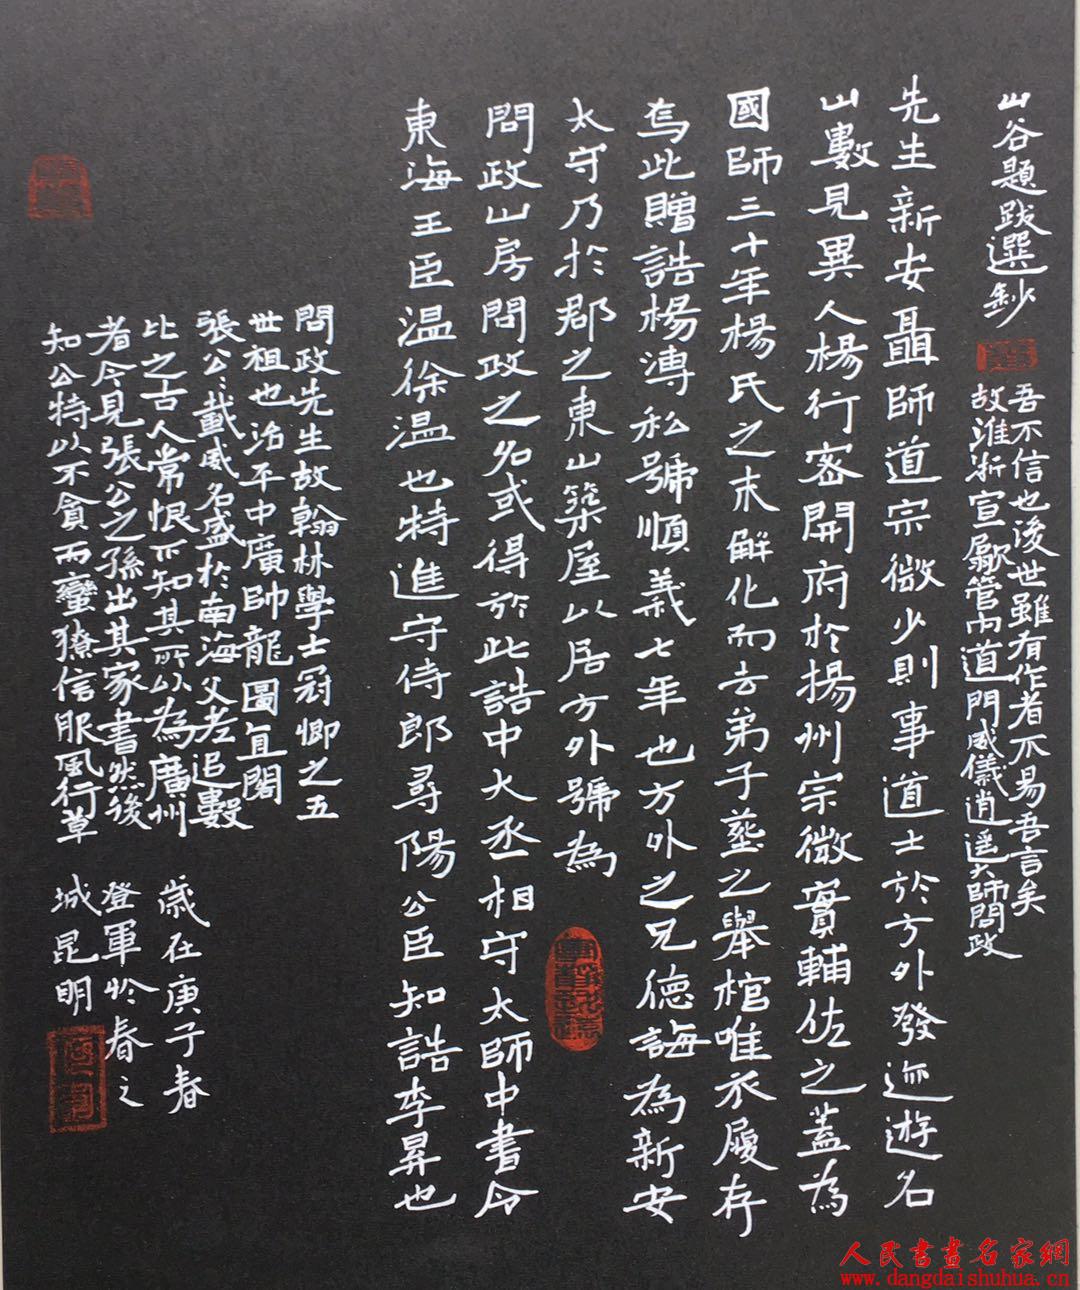 山谷題跋選鈔
吾不信也後世雖有作者不易吾言矣
故淮浙宣歙管內道門威儀逍遥大師問政
先生新安聶師道宗微少則事道士於方外發迹遊名
山數見異人楊行密開府於揚州宗微實輔佐之蓋為
國師三十年楊氏之末解化而去弟子葬之舉棺唯衣履存
焉此贈誥楊溥私號順義七年也方外之兄德誨為新安
太守乃於郡之東山築屋以居方外號為
問政山房問政之名或得於此誥中大丞相守太師中書令
東海王臣温徐温也特進守侍郎尋陽公臣知誥李昇也
問政先生故翰林學士冠卿之五
世祖也治平中廣帥龍圖直閣
張公公戴威名盛於南海父老追數
比之古人常恨不知其所以為廣州
者今見張公之孫出其家書然後
知公特以不貪而蠻獠信服風行草
歲在庚子春
登軍於春之
城昆明
人民書畫名家網
www.dangdaishuhua.cn